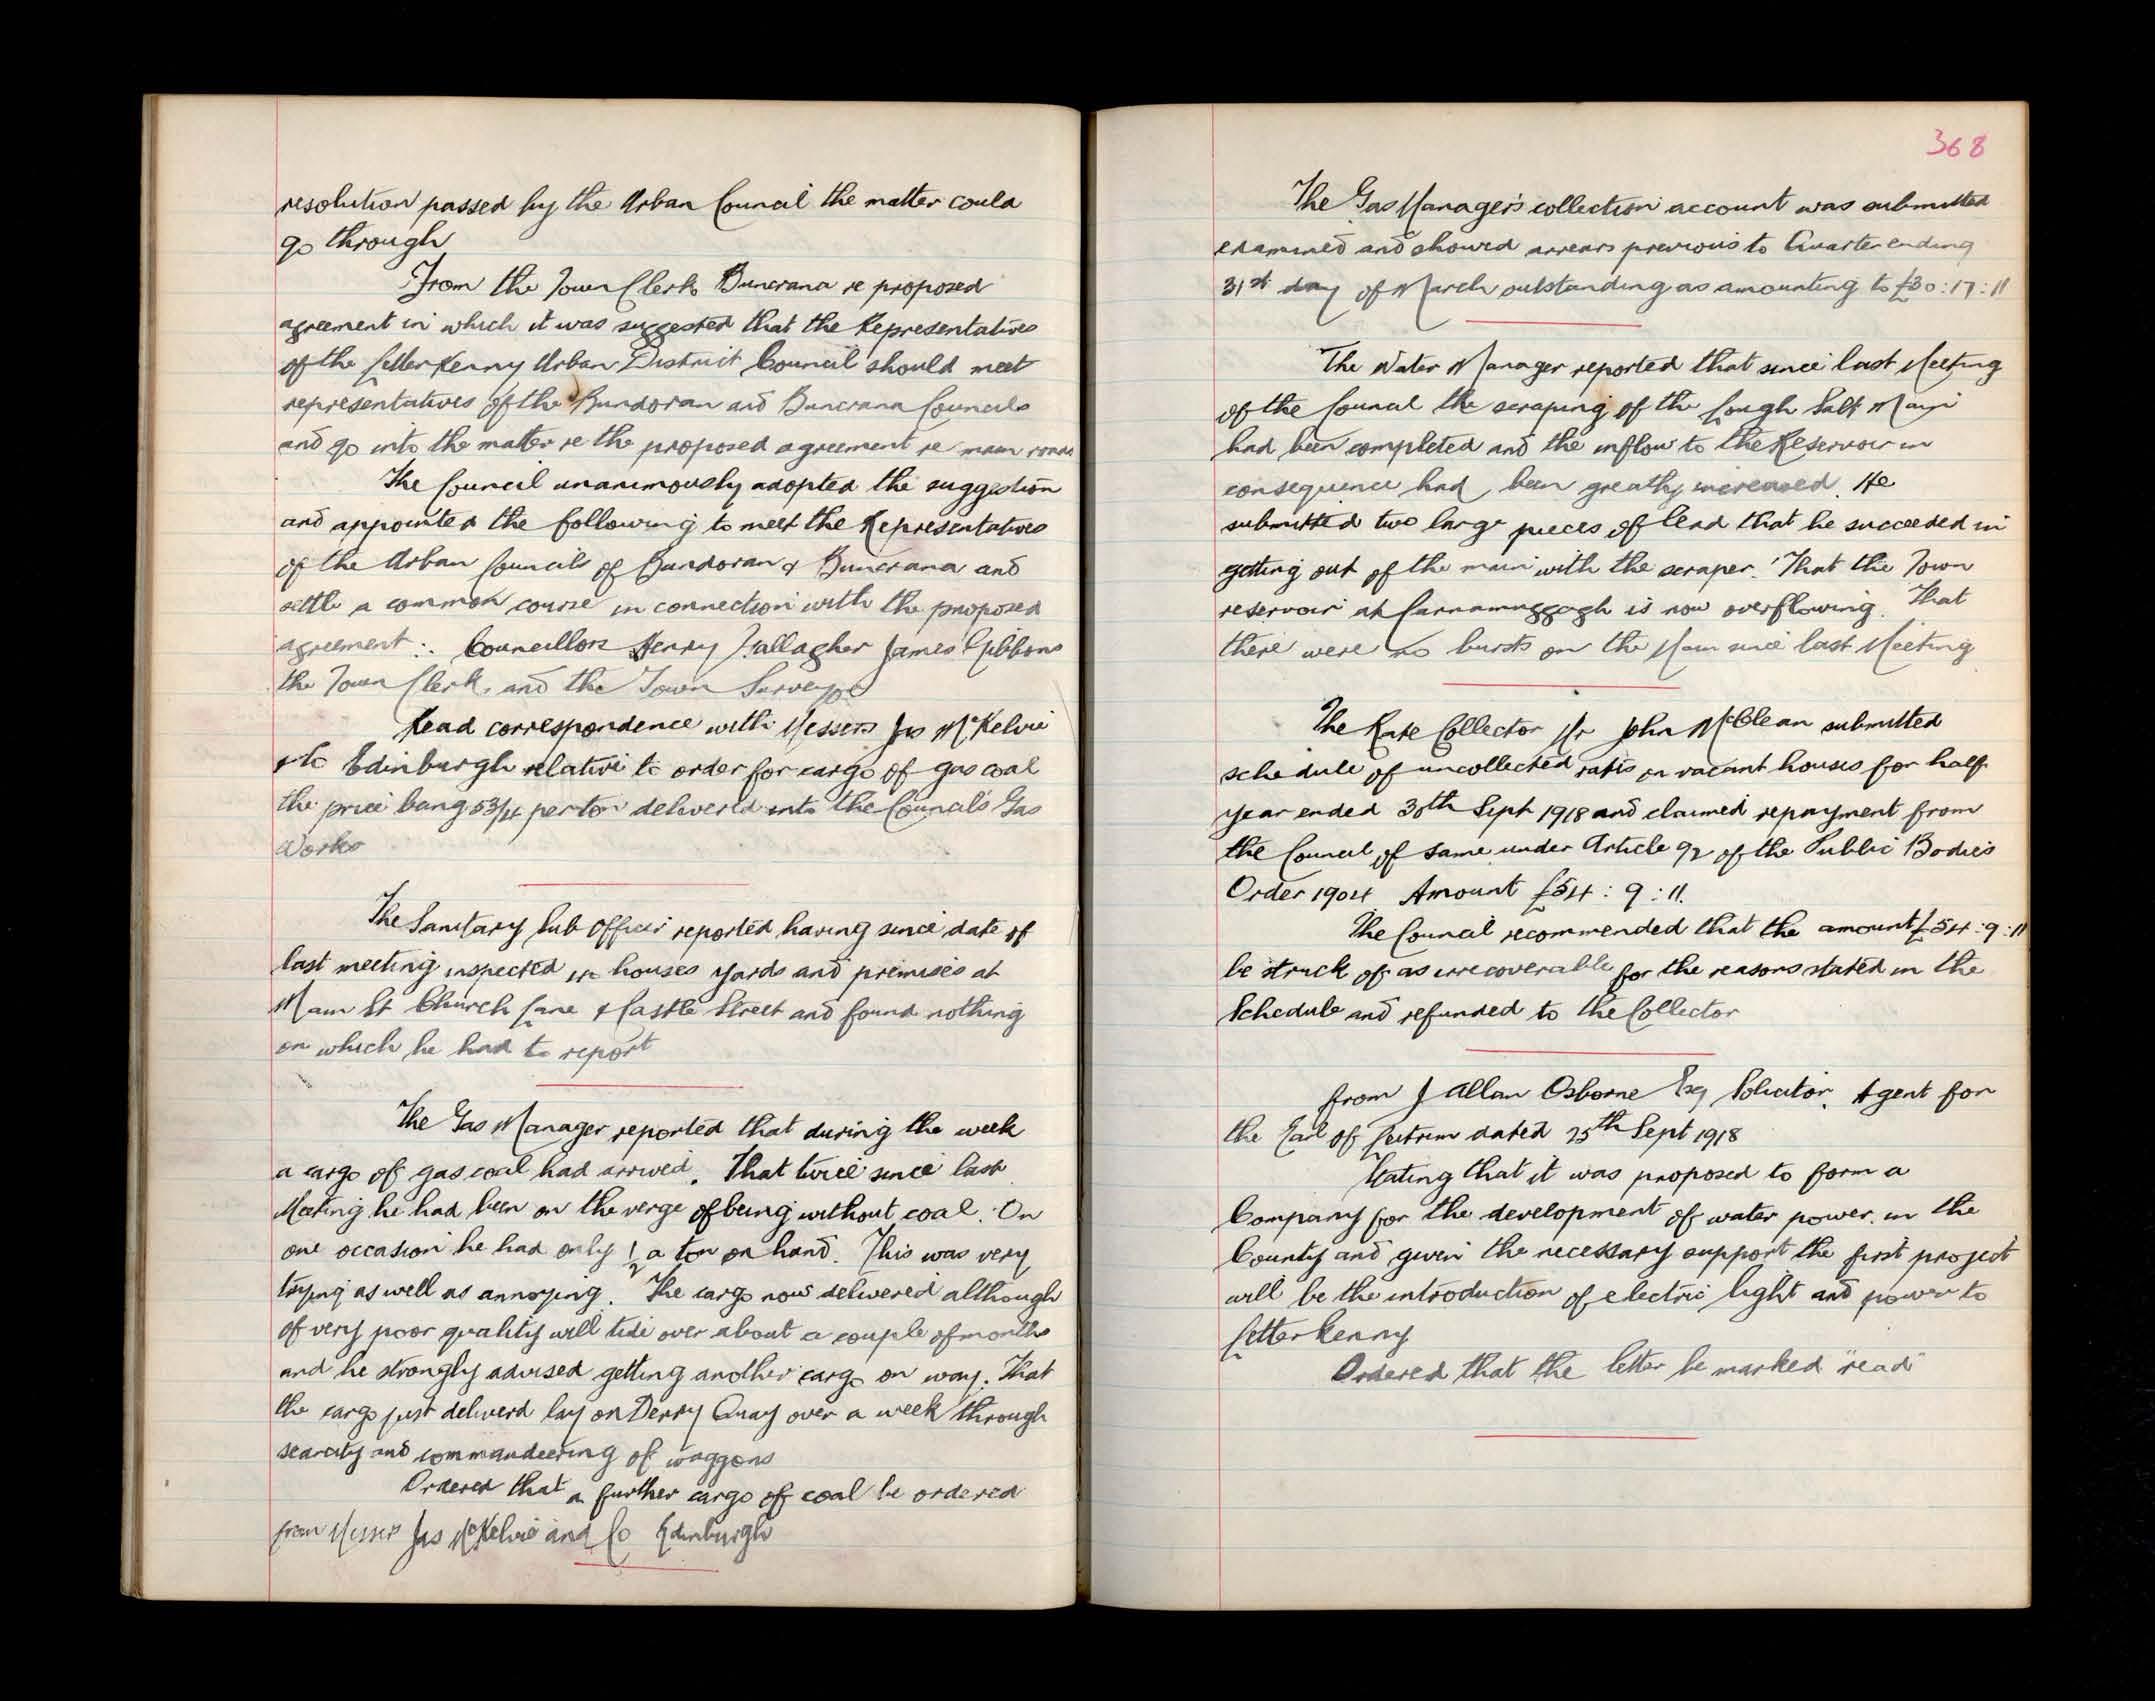 resolution passed by the Urban Council the matter could
go through
From the Town Clerk Buncrana re proposed
agreement in which it was suggested that the Representatives
of the Letterkenny Urban District Council should meet
representatives of the Bundoran and Buncrana Councils
and go into the matter re the proposed agreement re main roads
The Council unanimously adopted the suggestion
and appointed the following to meet the Representatives
of the Urban Councils of Bundoran & Buncrana and
settle a common course in connection with the proposed
agreement :. Councillors Henry Gallagher James Gibbons
the Town Clerk, and the Town Surveyor
Read correspondence with Messrs Jas McKelvie
& Co Edinburgh relative to order for cargo of gas coal
the price being 53/4 per ton delivered into the Council's Gas
Works
The Sanitary Sub Officer reported having since date of
last meeting inspected houses yards and premises at
Main St Church Lane & Castle Street and found nothing
on which he had to report
The Gas Manager reported that during the week
a cargo of gas coal had arrived. That twice since last
Meeting he had been on the verge of being without coal. On
one occasion he had only 1/2 a ton on hand. This was very
trying as well as annoying. The cargo now delivered although
of very poor quality will tide over about a couple of months
and he strongly advised getting another cargo on way. That
the cargo just deliverd lay on Derry Quay over a week through
scarcity and commandeering of waggons
Ordered that a further cargo of coal be ordered
from Messrs Jas McKelvie and Co Edinburgh
368
The Gas Manager's collection account was submitted
examined and showed arrears previous to Quarter ending
31st day of March outstanding as amounting to £30:17:11
The Water Manager reported that since last Meeting
of the Council the scraping of the Lough Salt Main
had been completed and the inflow to the Reservoir in
consequence had been greatly increased. He
submitted two large pieces of lead that he succeeded in
getting out of the main with the scraper. That the Town
reservoir at Carnamuggagh is now overflowing. That
there were no bursts on the Main since last Meeting
The Rate Collector Mr John McClean submitted
schedule of uncollected rates on vacant houses for half
year ended 30th Sept 1918 and claimed repayment from
the Council of same under Article 92 of the Public Bodies
Order 1904 Amount £54:9:11.
The Council recommended that the amount £54:9:11
be struck of as irrecoverable for the reasons stated in the
Schedule and refunded to the Collector
from J Allan Osborne Esq Solicitor. Agent for
the Earl of Leitrim dated 25th Sept 1918
Stating that it was proposed to form a
Company for the development of water power in the
County and given the necessary support the first project
will be the introduction of electric light and power to
Letterkenny
Ordered that the letter be marked "read"